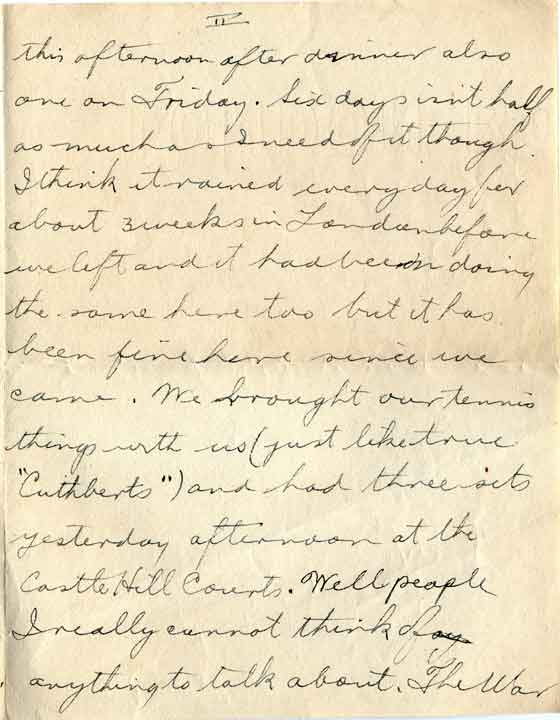 IV
this afternoon after dinner also
one on Friday. Six days isn't half
as much as I need of it though.
I think it rained every day for
about 3 weeks in London before
we left and it had been doing
the same here too but it has
been fine here since we
came. We brought our tennis
things with us (just like true
"Cuthberts") and had three sets
yesterday afternoon at the
Castle Hill Courts. Well people
I really cannot think of
anything to talk about. The War